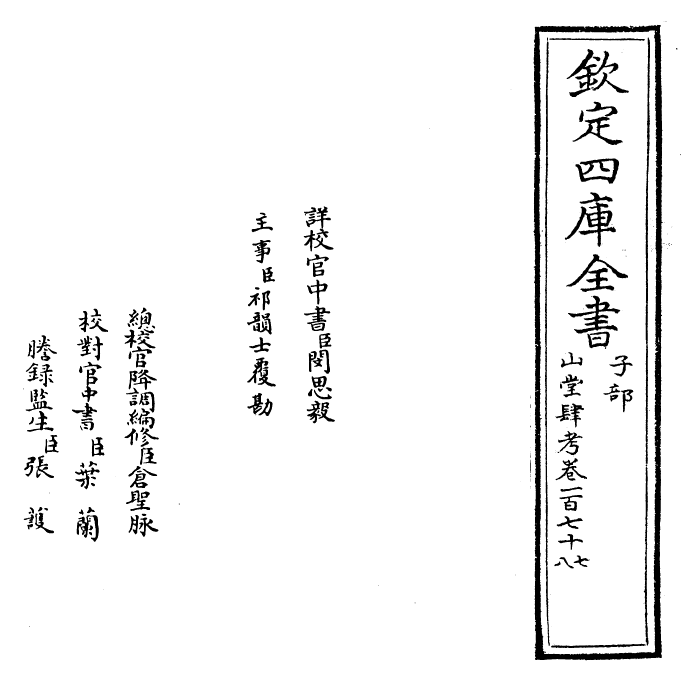 欽定四庫全書
子部
山堂肆考卷一百七十七
八
詳校官中書臣閔思毅
主事臣祁韻士覆勘
總校官降調編修臣倉聖脉
校對官中書臣葉蘭
謄錄監生臣張頀